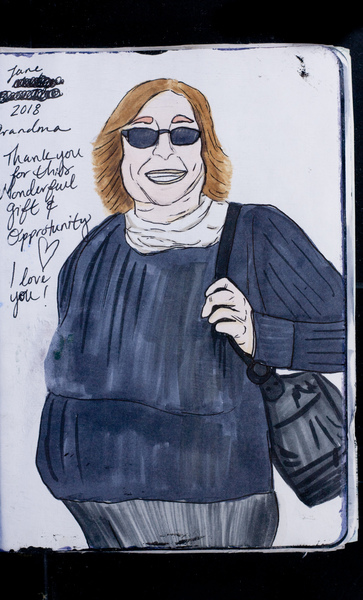 June
2018
Grandma
Thank you
for this
Wonderful
gift &
Opprotunity
I love
you!